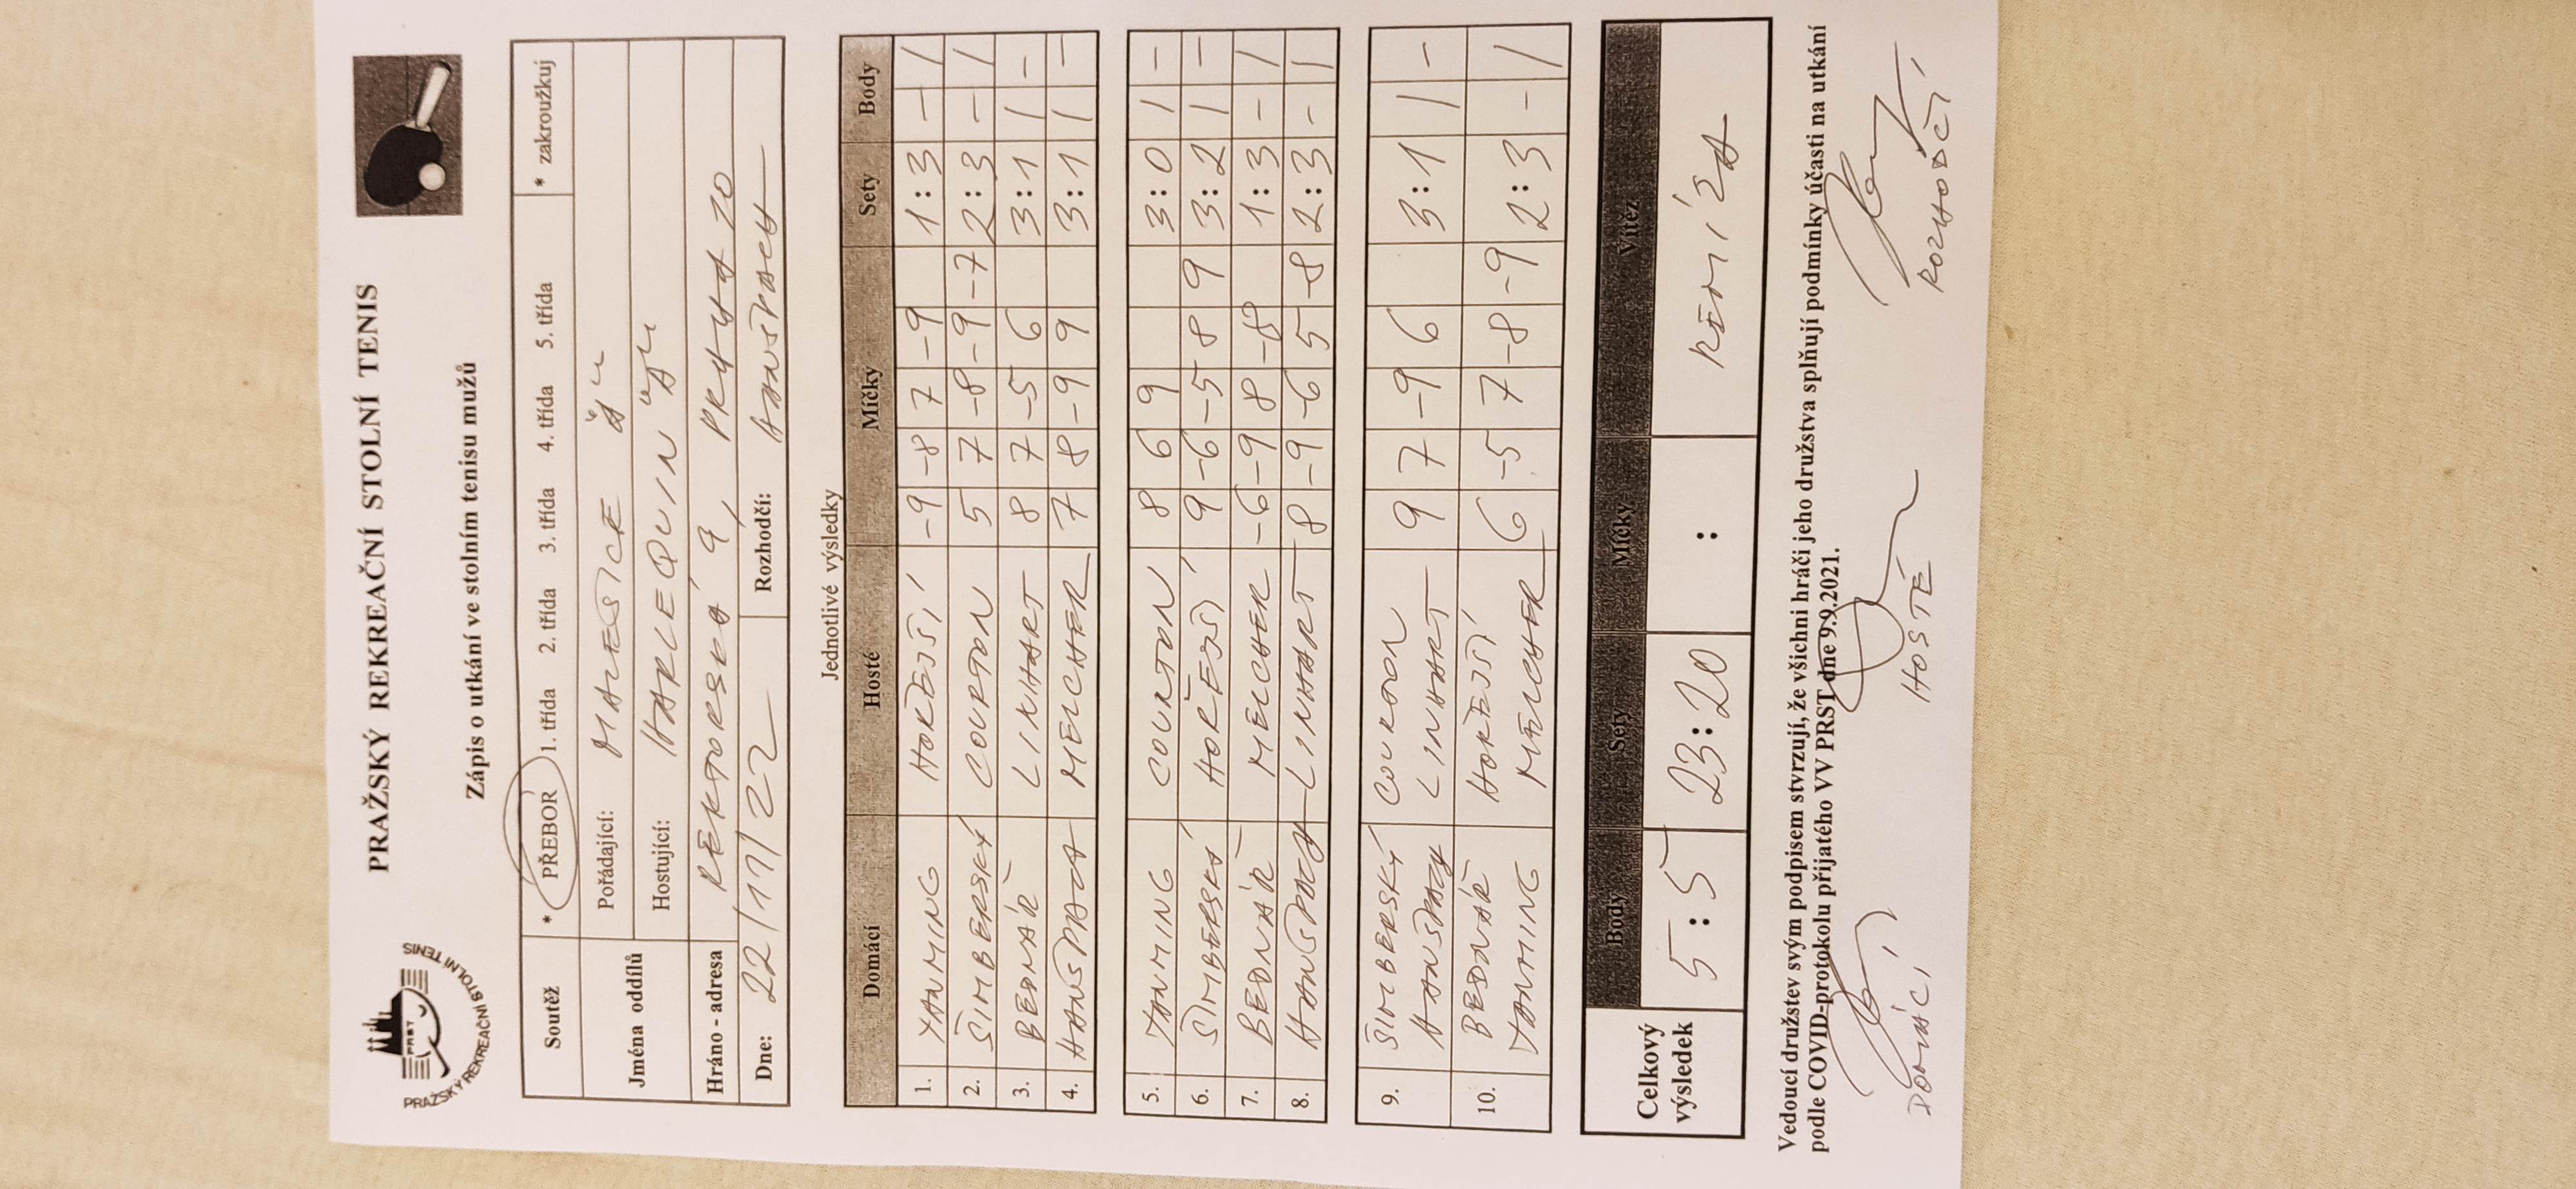 PRAŽSKÝ REKREAČNÍ STOLNÍ TENIS
PRST
PRAŽSKÝ REKREAČNÍ STOLNÍ TENIS
Zápis o utkání ve stolním tenisu mužů
Soutěž * PŘEBOR 1. třída 2. třída 3. třída 4. třída 5. třída * zakroužkuj
Jména oddílů
Pořádající: MALEŠICE "A"
Hostující: HARLEQUIN "A"
Hráno - adresa REKTORSKÁ 9, PRAHA 10
Dne: 22/11/22 Rozhodčí: HANŠPACH
Jednotlivé výsledky
Domácí Hosté Míčky Sety Body
1. YANMING HOŘEJŠÍ -9 -8 7 -9 1:3 - /
2. ŠIMBERSKÝ COURTON 5 7 -8 -9 -7 2:3 - /
3. BEDNÁŘ LINHART 8 7 -5 6 3:1 / -
4. HANŠPACH MELCHER 7 8 -9 9 3:1 / -
5. YANMING COURTON 8 6 9 3:0 / -
6. ŠIMBERSKÝ HOŘEJŠÍ 9 -6 -5 8 9 3:2 / -
7. BEDNÁŘ MELCHER -6 -9 8 -8 1:3 - /
8. HANŠPACH LINHART 8 -9 -6 5 -8 2:3 - /
9. ŠIMBERSKÝ COURTON
HANŠPACH LINHART 9 7 -9 6 3:1 / -
10. BEDNÁŘ HOŘEJŠÍ
YANMING MELCHER 6 -5 7 -8 -9 2:3 - /
Celkový výsledek
Body Sety Míčky Vítěz
5:5 23:20 : REMÍZA
Vedoucí družstev svým podpisem stvrzují, že všichni hráči jeho družstva splňují podmínky účasti na utkání
podle COVID-protokolu přijatého VV PRST dne 9.9.2021.
DOMÁCÍ HOSTÉ ROZHODČÍ